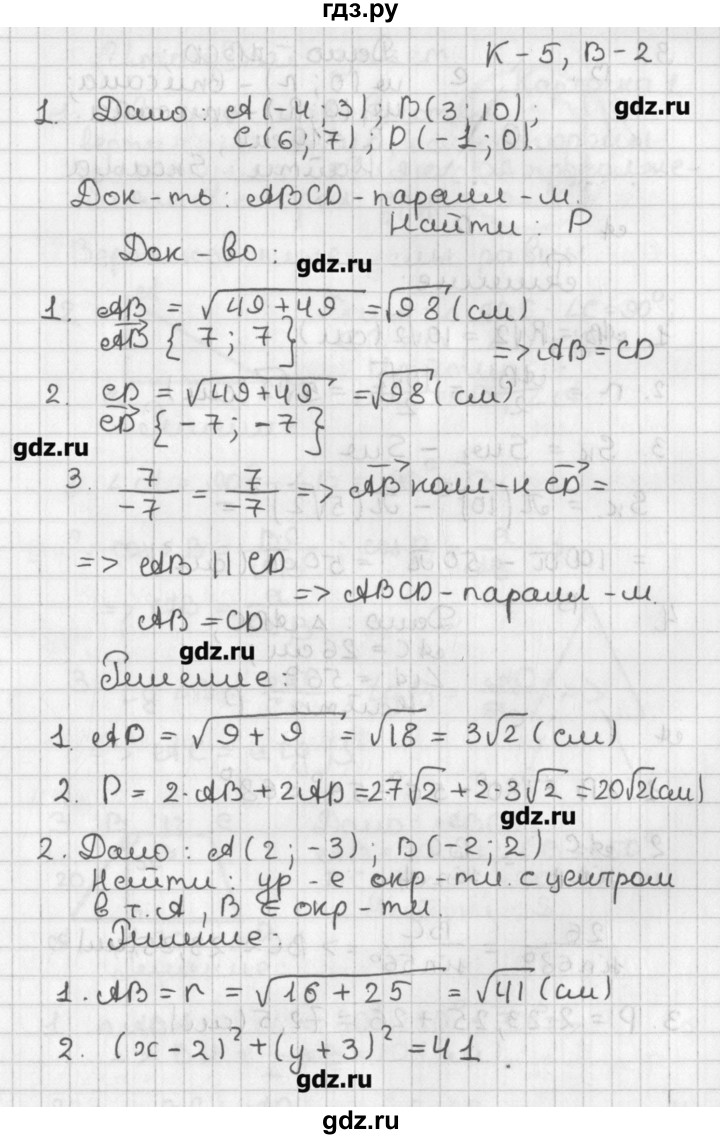 гдз.ру
К-5, В-2
gdz.ru
1. Дано: A(-4; 3); B(3; 10);
C(6; 7); D(-1; 0).
Док-ть: ABCD-паралл-м.
Найти: P
Док-во:
gdz.ru
1. AB = √49+49 = √98 (см)
AB→ {7; 7}
=> AB = CD
2. CD = √49+49 = √98 (см)
CD→ {-7; -7}
gdz.ru
3. 7/-7 = 7/-7 => AB→ колл-н CD→ =
=> AB || CD
=> ABCD-паралл-м.
AB = CD
gdz.ru
Решение:
1. AD = √9+9 = √18 = 3√2 (см)
2. P = 2·AB + 2AD = 2·7√2 + 2·3√2 = 20√2(см)
gdz.ru
2. Дано: A(2; -3); B(-2; 2)
Найти: ур-е окр-ти. с центром
в т. A, B ∈ окр-ти.
Решение:
1. AB = r = √16 + 25 = √41 (см)
2. (x-2)² + (y+3)² = 41.
gdz.ru
gdz.ru